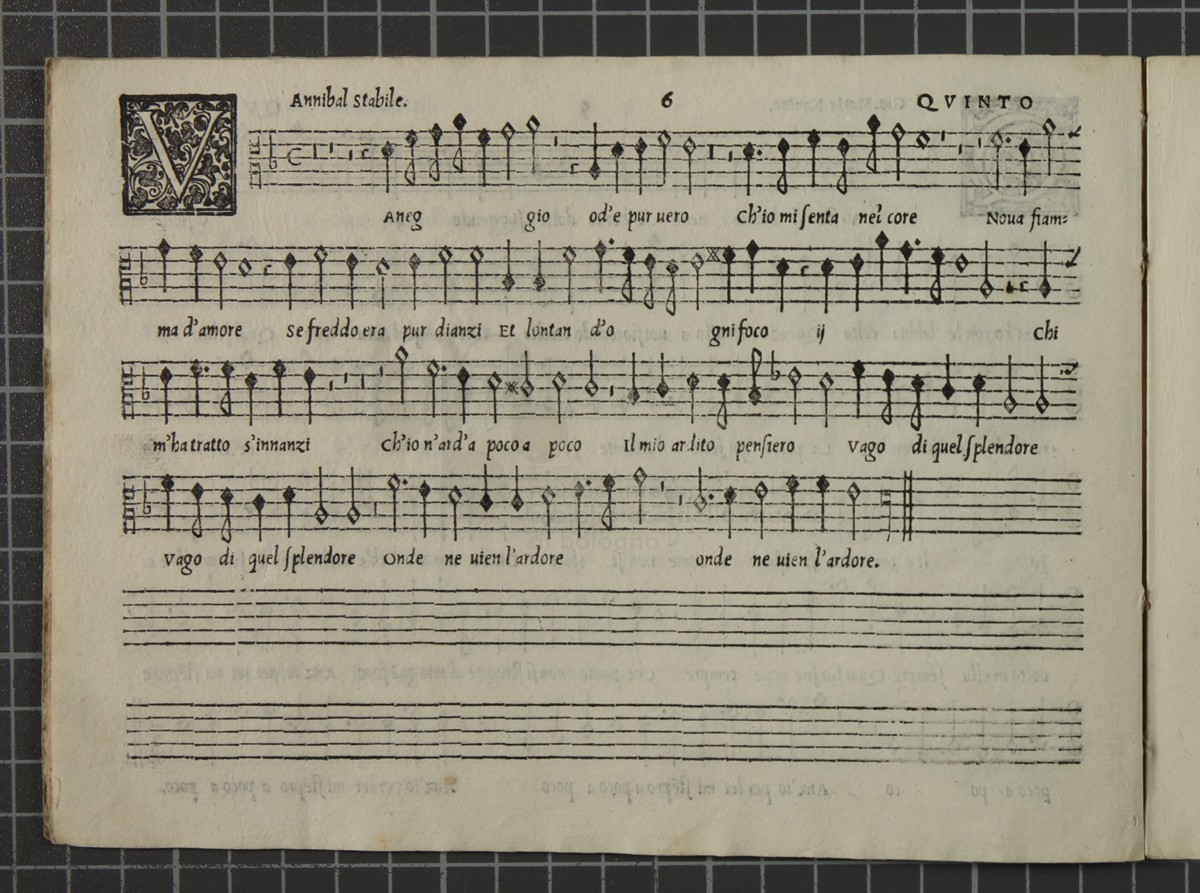 Annibal Stabile. 6 QVINTO
V Aneg gio od'e pur uero Ch'io mi senta nel core Noua fiam-
ma d'amore Se freddo era pur dianzi Et lontan d'o gni foco ij Chi
m'ha tratto s'innanzi Ch'io n'ard'a poco a poco Il mio ardito pensiero Vago di quel splendore
Vago di quel splendore Onde ne uien l'ardore onde ne uien l'ardore.